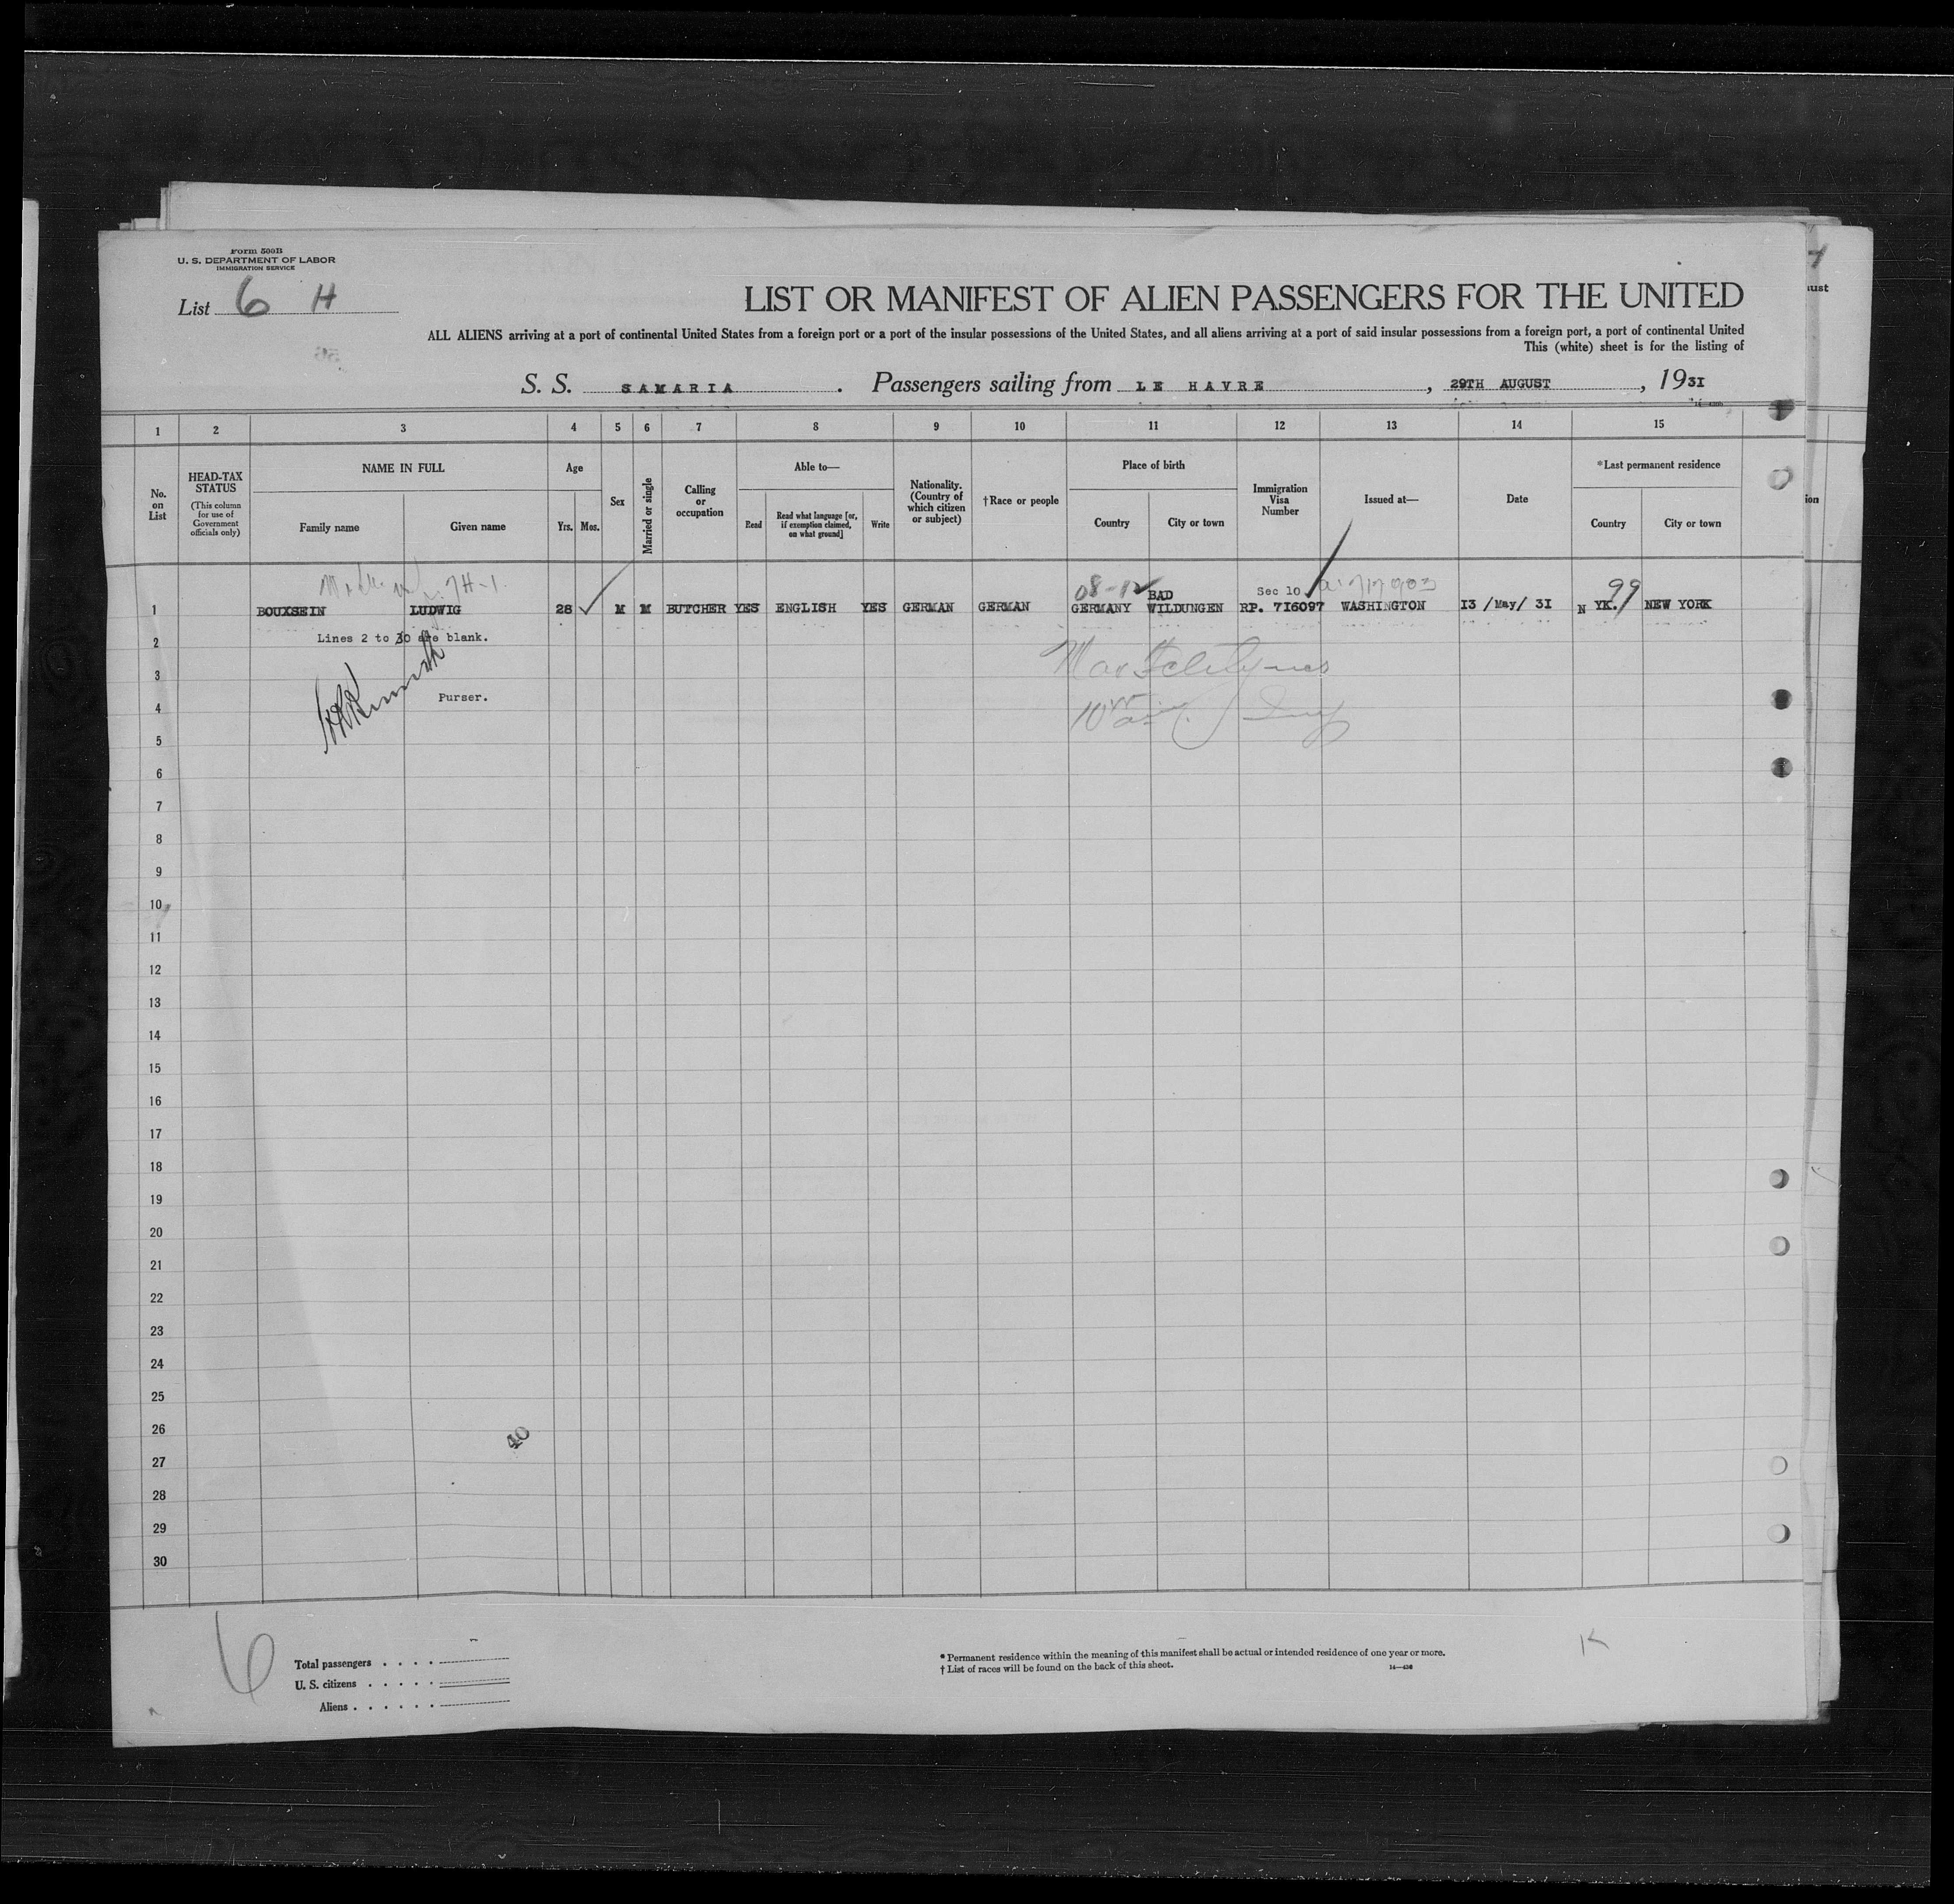 Form 500B
U. S. DEPARTMENT OF LABOR
IMMIGRATION SERVICE
List 6 H
LIST OR MANIFEST OF ALIEN PASSENGERS FOR THE UNITED
ALL ALIENS arriving at a port of continental United States from a foreign port or a port of the insular possessions of the United States, and all aliens arriving at a port of said insular possessions from a foreign port, a port of continental United
This (white) sheet is for the listing of
S. S. SAMARIA . Passengers sailing from LE HAVRE , 29TH AUGUST , 1931
1 2 3 4 5 6 7 8 9 10 11 12 13 14 15
No. on List
HEAD-TAX STATUS (This column for use of Government officials only)
NAME IN FULL
Family name Given name
Age
Yrs. Mos.
Sex
Married or single
Calling or occupation
Able to—
Read Read what language [or, if exemption claimed, on what ground] Write
Nationality. (Country of which citizen or subject)
†Race or people
Place of birth
Country City or town
Immigration Visa Number
Issued at—
Date
*Last permanent residence
Country City or town
08-12 BAD Sec 10 99
1 BOUXSEIN LUDWIG 28 M M BUTCHER YES ENGLISH YES GERMAN GERMAN GERMANY WILDUNGEN RP. 716097 WASHINGTON 13 /May/ 31 N YK. NEW YORK
2 Lines 2 to 30 are blank.
3
4 Purser.
5
6
7
8
9
10
11
12
13
14
15
16
17
18
19
20
21
22
23
24
25
26
40
27
28
29
30
6
Total passengers
U. S. citizens
Aliens
* Permanent residence within the meaning of this manifest shall be actual or intended residence of one year or more.
† List of races will be found on the back of this sheet.
K